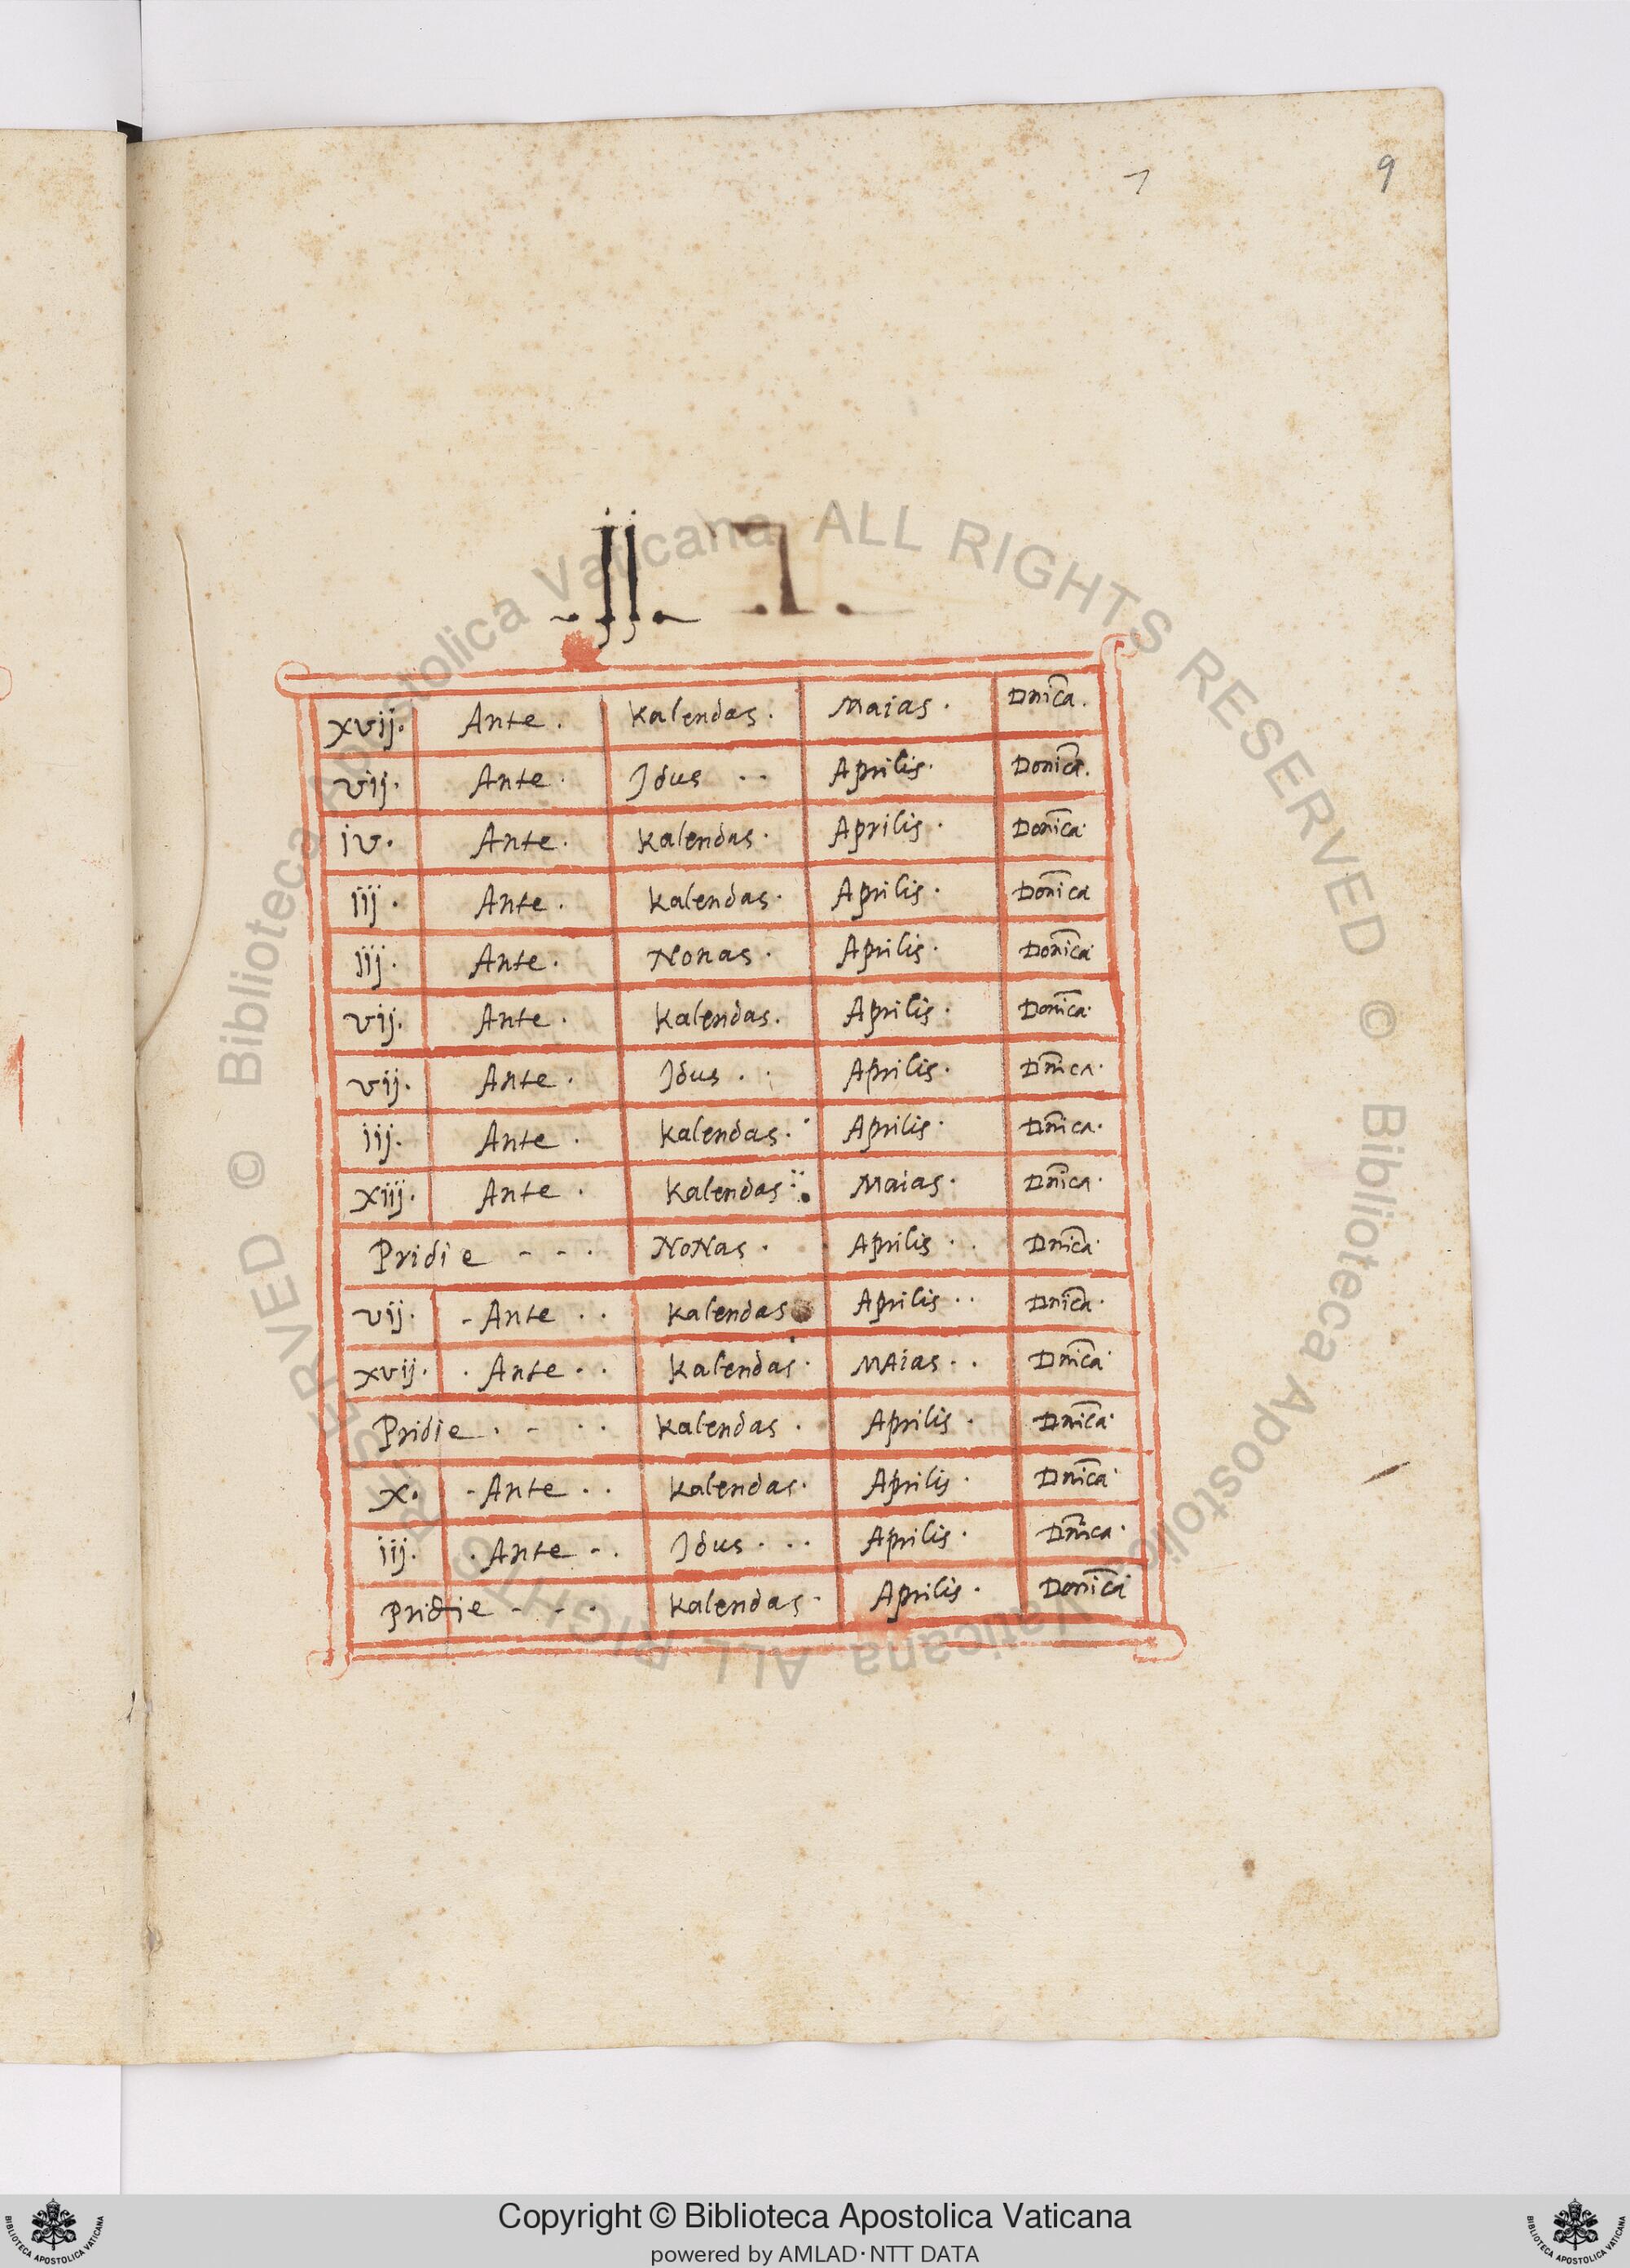 7 9
.ij. 7.
xvij. Ante. Kalendas. Maias. Dnica.
vij. Ante. Idus .. Aprilis. Donica.
iv. Ante. Kalendas. Aprilis. Donica.
iij. Ante. Kalendas. Aprilis. Donica
iij. Ante. Nonas. Aprilis. Donica
vij. Ante. Kalendas. Aprilis. Donica.
vij. Ante. Idus .. Aprilis. Dnica.
iij. Ante. Kalendas. Aprilis. Dnica.
xiij. Ante. Kalendas. Maias. Dnica.
Pridie - - . NoNas. Aprilis .. Dnica.
vij. - Ante .. Kalendas Aprilis .. Dnica.
xvij. . Ante .. Kalendas. MAias .. Dnica.
Pridie . - .. Kalendas. Aprilis. Dnica.
x. - Ante .. Kalendas. Aprilis. Dnica
iij. . Ante -. Idus ... Aprilis. Dnica.
Pridie - - . Kalendas. Aprilis. Donica
© Biblioteca Apostolica Vaticana ALL RIGHTS RESERVED © Biblioteca Apostolica Vaticana ALL RIGHTS RESERVED
Copyright © Biblioteca Apostolica Vaticana
powered by AMLAD·NTT DATA
BIBLIOTECA APOSTOLICA VATICANA
BIBLIOTECA APOSTOLICA VATICANA